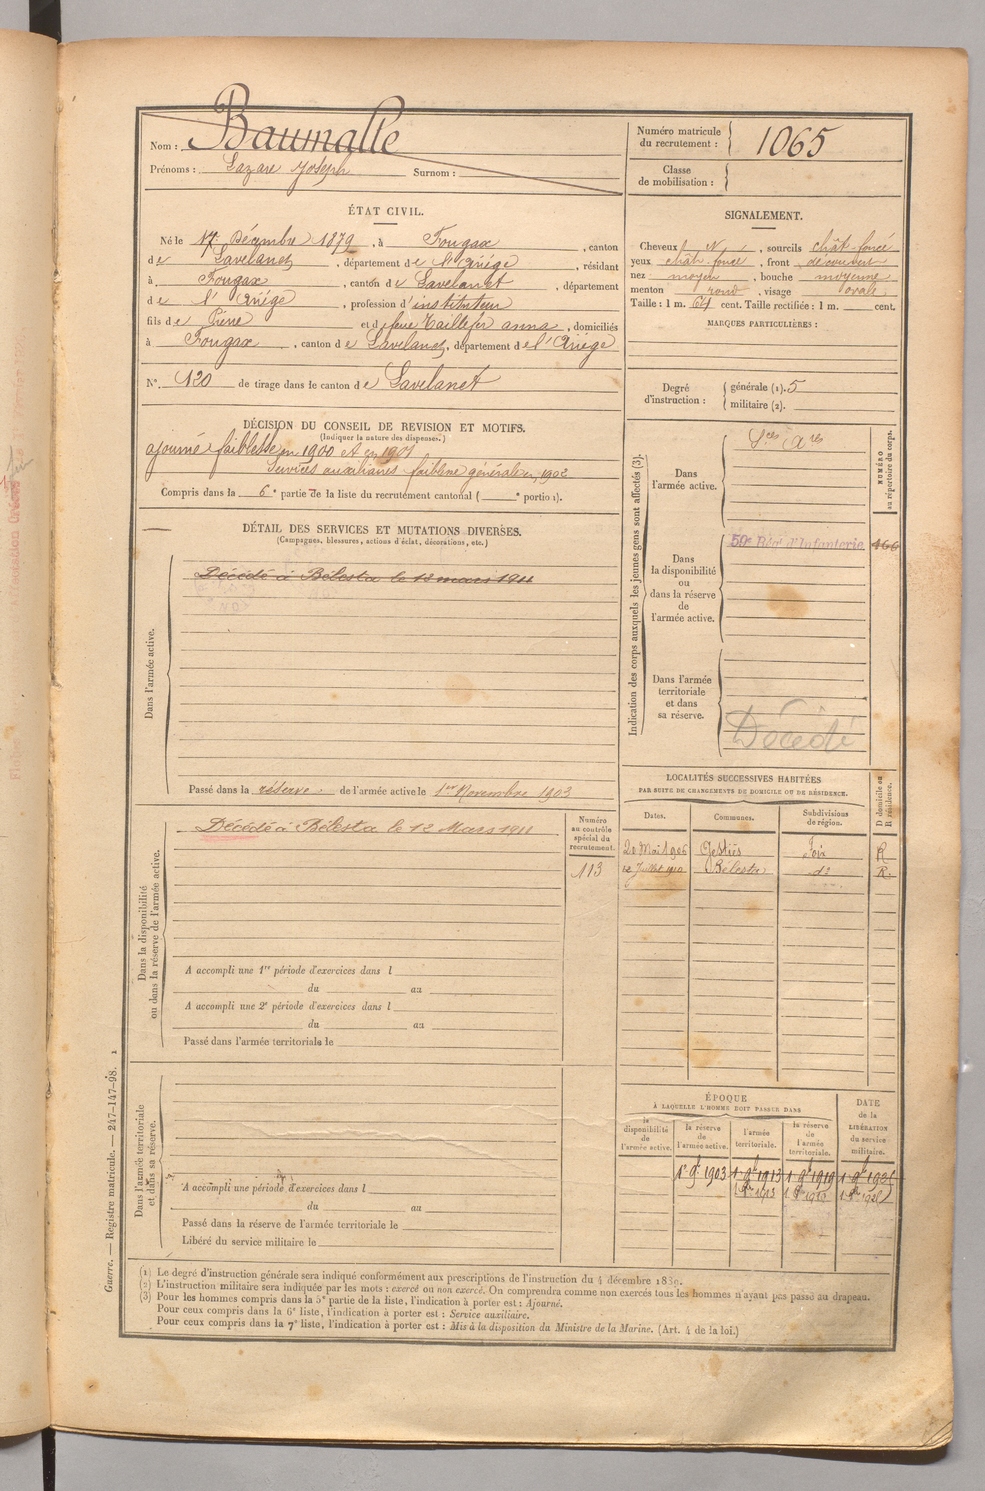 Nom : Baumalle
Prénoms : Lazare Joseph Surnom :
Numéro matricule du recrutement : 1065
Classe de mobilisation :
ÉTAT CIVIL.
Né le 17 Décembre 1879, à Fougax, canton
de Lavelanet, département de l'Ariège, résidant
à Fougax, canton de Lavelanet, département
de l'Ariège, profession d'instituteur
fils de Pierre et de feue Taillefer anna, domiciliés
à Fougax, canton de Lavelanet, département de l'Ariège
N° 120 de tirage dans le canton de Lavelanet
SIGNALEMENT.
Cheveux N, sourcils chât-foncé
yeux chât-foncé, front découvert
nez moyen, bouche moyenne
menton rond, visage ovale
Taille : 1 m. 64 cent. Taille rectifiée : 1 m. cent.
MARQUES PARTICULIÈRES :
Degré d'instruction : générale (1). 5
militaire (2).
DÉCISION DU CONSEIL DE REVISION ET MOTIFS.
(Indiquer la nature des dispenses.)
ajourné faiblesse en 1900 et en 1901
Services auxiliaires faiblesse générale en 1902
Compris dans la 6e partie de la liste du recrutement cantonal ( e portion).
DÉTAIL DES SERVICES ET MUTATIONS DIVERSES.
(Campagnes, blessures, actions d'éclat, décorations, etc.)
Dans l'armée active.
Décédé à Bélesta le 12 mars 1911
Passé dans la réserve de l'armée active le 1er Novembre 1903
Indication des corps auxquels les jeunes gens sont affectés (3).
NUMÉRO au répertoire du corps.
Dans l'armée active.
Sces Ares
Dans la disponibilité ou dans la réserve de l'armée active.
59e Régt d'Infanterie 466
Dans l'armée territoriale et dans sa réserve.
Décédé
Dans la disponibilité ou dans la réserve de l'armée active.
Décédé à Bélesta le 12 Mars 1911
Numéro au contrôle spécial du recrutement.
113
A accompli une 1re période d'exercices dans l
du au
A accompli une 2e période d'exercices dans l
du au
Passé dans l'armée territoriale le
LOCALITÉS SUCCESSIVES HABITÉES
PAR SUITE DE CHANGEMENTS DE DOMICILE OU DE RÉSIDENCE.
Dates. Communes. Subdivisions de région. D domicile ou R résidence.
20 Mai 1906 Foix R
12 Juillet 1910 Bélesta do R.
Dans l'armée territoriale et dans sa réserve.
A accompli une période d'exercices dans l
du au
Passé dans la réserve de l'armée territoriale le
Libéré du service militaire le
ÉPOQUE
À LAQUELLE L'HOMME DOIT PASSER DANS
la disponibilité de l'armée active. la réserve de l'armée active. l'armée territoriale. la réserve de l'armée territoriale. DATE de la LIBÉRATION du service militaire.
1er 9bre 1903 1 9bre 1913 1 9bre 1919
(1) Le degré d'instruction générale sera indiqué conformément aux prescriptions de l'instruction du 4 décembre 1889.
(2) L'instruction militaire sera indiquée par les mots : exercé ou non exercé. On comprendra comme non exercés tous les hommes n'ayant pas passé au drapeau.
(3) Pour les hommes compris dans la 5e partie de la liste, l'indication à porter est : Ajourné.
Pour ceux compris dans la 6e liste, l'indication à porter est : Service auxiliaire.
Pour ceux compris dans la 7e liste, l'indication à porter est : Mis à la disposition du Ministre de la Marine. (Art. 4 de la loi.)
Guerre. — Registre matricule. — 247-147-98. 1